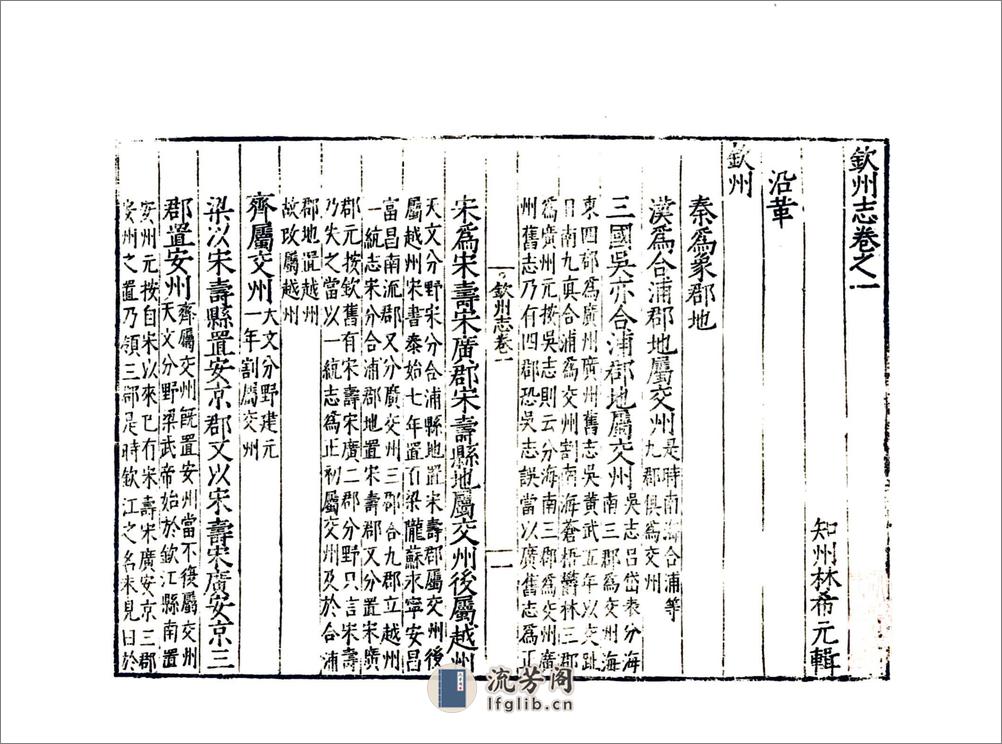 欽州志卷之一
知州林希元輯
沿革
欽州
秦爲象郡地
漢爲合浦郡地屬交州
是時南海合浦等
九郡俱爲交州
三國吳亦合浦郡地屬交州
吳志吕岱表分海
南三郡爲交州海
東四郡爲廣州廣州舊志吳黃武五年以交趾
日南九真合浦爲交州割南海蒼梧欝林三郡
爲廣州元按吳志則云分海南三郡爲交州廣
州舊志乃有四郡恐吳志誤當以廣舊志爲正
欽州志卷一
一
宋爲宋壽宋廣郡宋壽縣地屬交州後屬越州
天文分野宋分合浦縣地置宋壽郡屬交州後
屬越州宋書泰始七年置百梁隴蘇永寧安昌
富昌南流郡又分廣交州三郡合九郡立越州
一統志宋分合浦郡地置宋壽郡又分置宋廣
郡元按欽舊有宋壽宋廣二郡分野只言宋壽
乃失之當以一統志爲正初屬交州及於合浦
郡地置越州
故改屬越州
齊屬交州
天文分野建元
一年割屬交州
梁以宋壽縣置安京郡又以宋壽宋廣安京三
郡置安州
齊屬交州既置安州當不復屬交州
天文分野梁武帝始於欽江縣南置
安州元按自宋以來已有宋壽宋廣安京三郡
安州之置乃領三郡是時欽江之名未見曰於
流芳阁
lfglib.cn